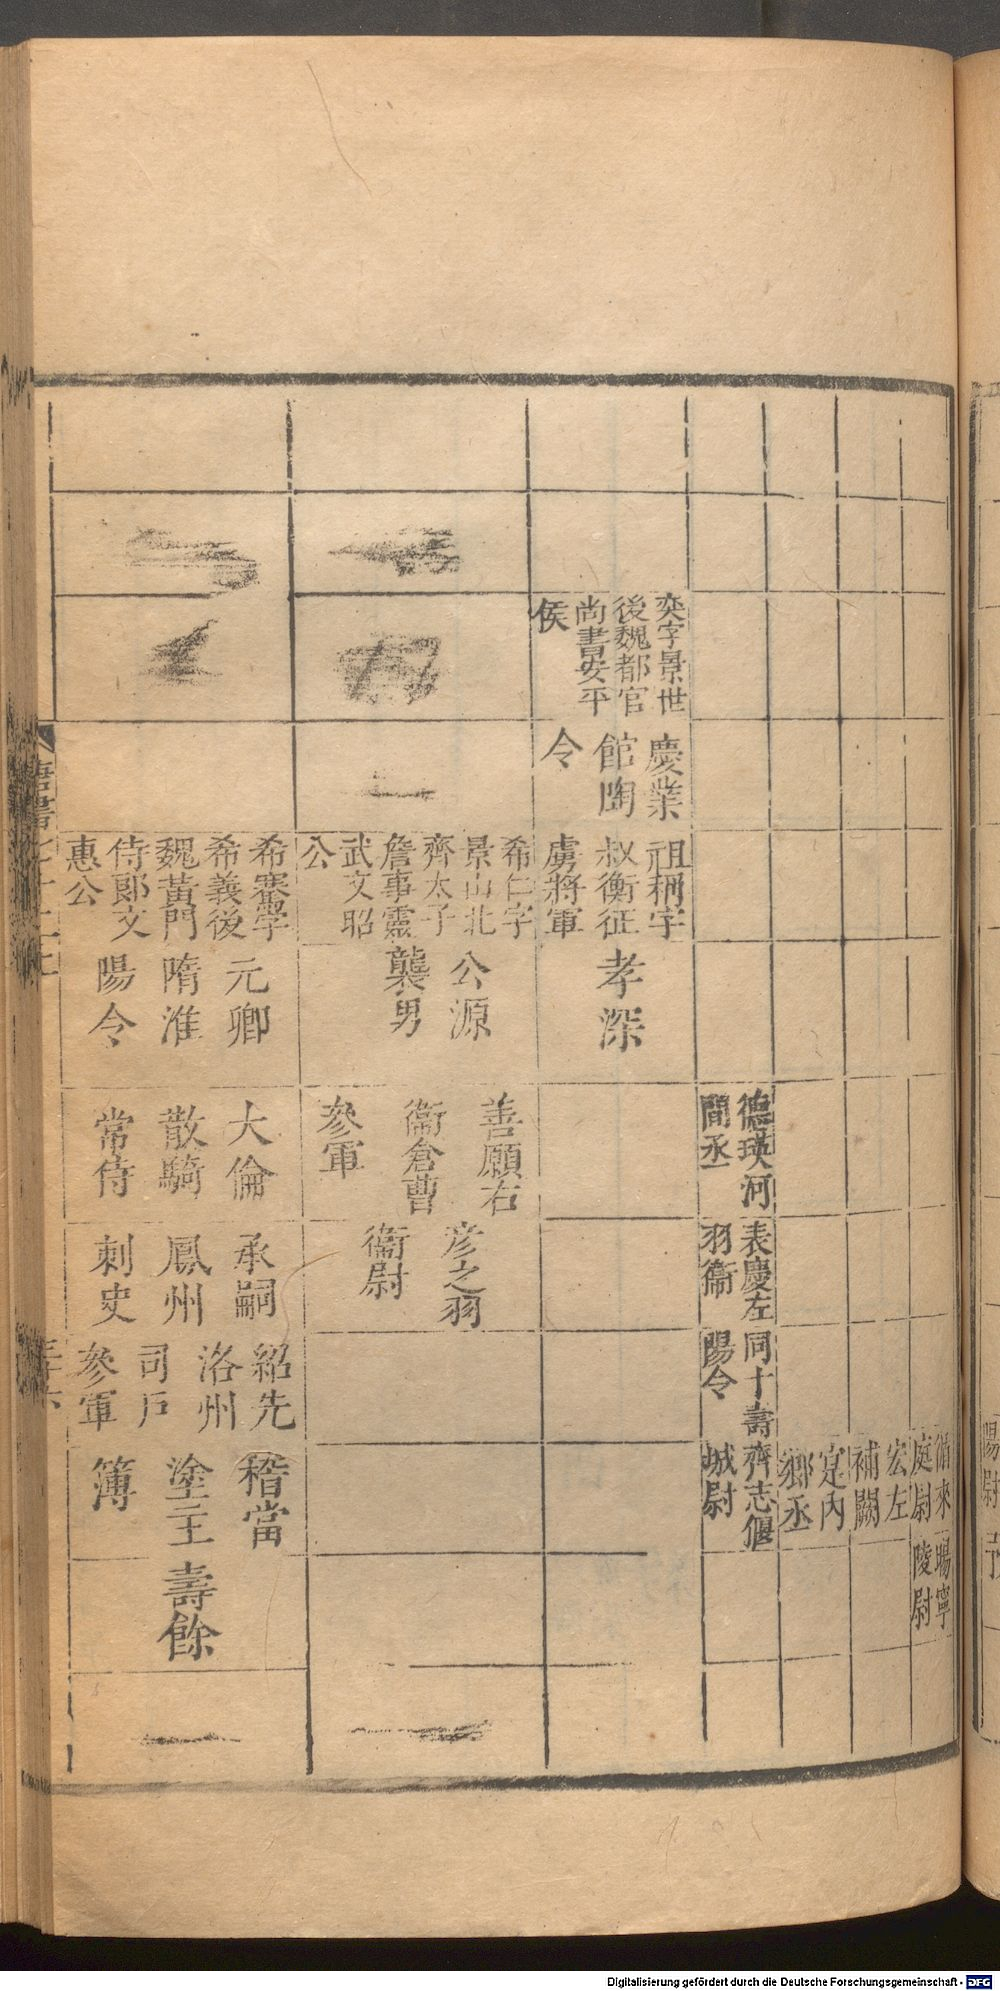 循來
庭尉
暘寧
陵尉
宏左
補闕
寔內
鄉丞
德瑛河
間丞
表慶左
羽衞
同十壽
陽令
齊志偃
城尉
奕字景世
後魏都官
尚書安平
侯
慶業
館陶
令
祖稱字
叔衡征
虜將軍
孝深
希仁字
景山北
齊太子
詹事靈
武文昭
公
公源
襲男
善願右
衞倉曹
參軍
彦之羽
衞尉
希騫字
希義後
魏黃門
侍郎文
惠公
元卿
隋淮
陽令
大倫
散騎
常侍
承嗣
鳳州
刺史
紹先
洛州
司戶
參軍
稽當
塗主
簿
壽餘
唐書
陽尉
Digitalisierung gefördert durch die Deutsche Forschungsgemeinschaft - DFG